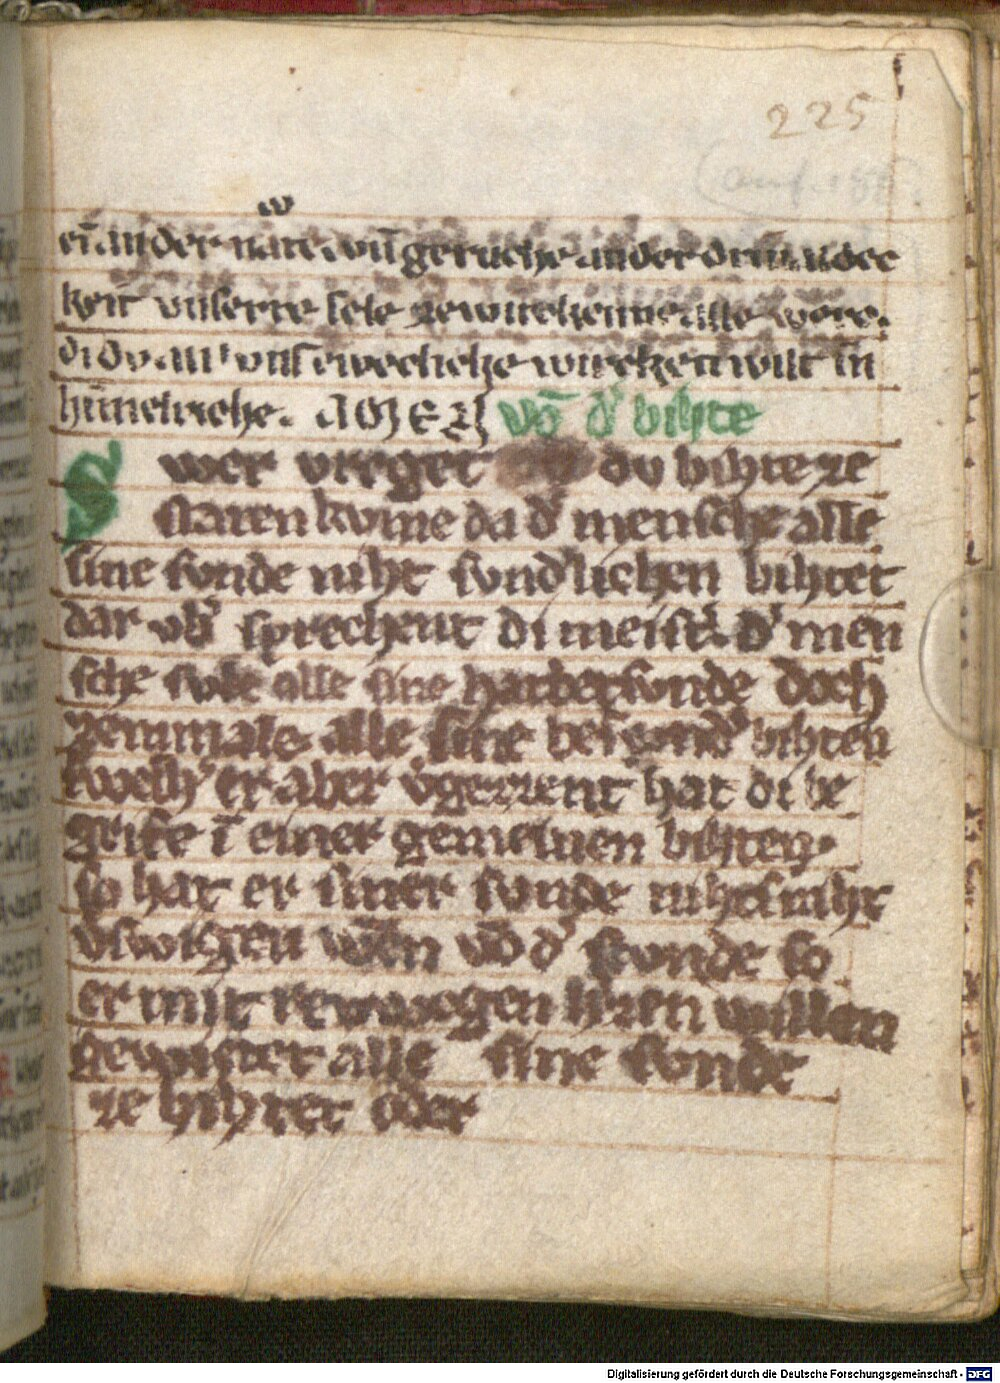 225
ein ander nare vn̄ geruche ander drinualdec
keit vnserre sele zewirckenne alle werc.
di dv an vns ewecliche wircken wilt in
himelriche. AMEN vō d' bihte
Swer vreget ob dv bihte ze
staten kvme da d' mensche alle
sine svnde niht svnd'lichen bihtet
dar vb' sprechent di meist'. D' men
sche svle alle sine havbetsvnde doch
zeinmale alle sine besvnd' bihten
swelh' er aber v'gezzent hat di be
grife ī einer gemeinen bihten.
so hat er siner svnde nihtsniht
vswigen
vō d' svnde so
er mit rewwegen h'zen willen
gewnster alle sine svnde
ze bihtet oder
Digitalisierung gefördert durch die Deutsche Forschungsgemeinschaft - DFG